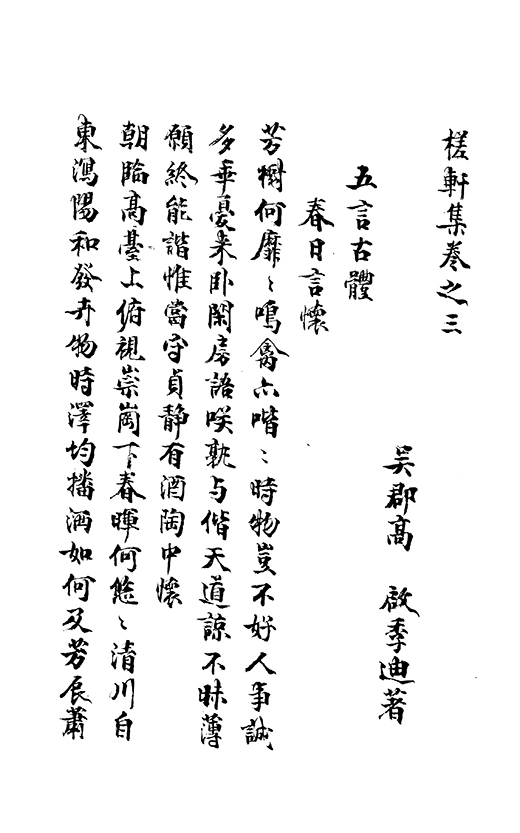 槎軒集卷之三
吳郡高　啟季迪著
五言古體
春日言懷
芳樹何靡〻鳴禽亦喈〻時物豈不好人事誠
多乖憂来卧閑房語咲孰与偕天道諒不昧薄
願終能諧惟當守貞靜有酒陶中懷
朝臨高臺上俯視崇崗下春暉何悠〻清川自
東瀉陽和發卉物時澤均播洒如何及芳辰蕭